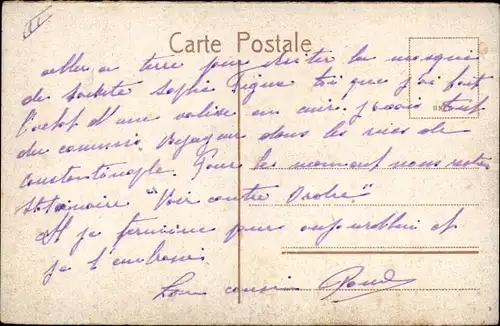 II
Carte Postale
aller a terre pour visiter la mosqué
de Sainte Sophie Figure toi que j'ai fait
l'achat d'une valise en cuir. j'avais tout
du commis Voyageur dans les rues de
Constantinople. Pour le moment nous restons
stationaire "Voir contre Ordre."
Et je termine pour aujourd'hui et
je t'embrasse
Ton cousin